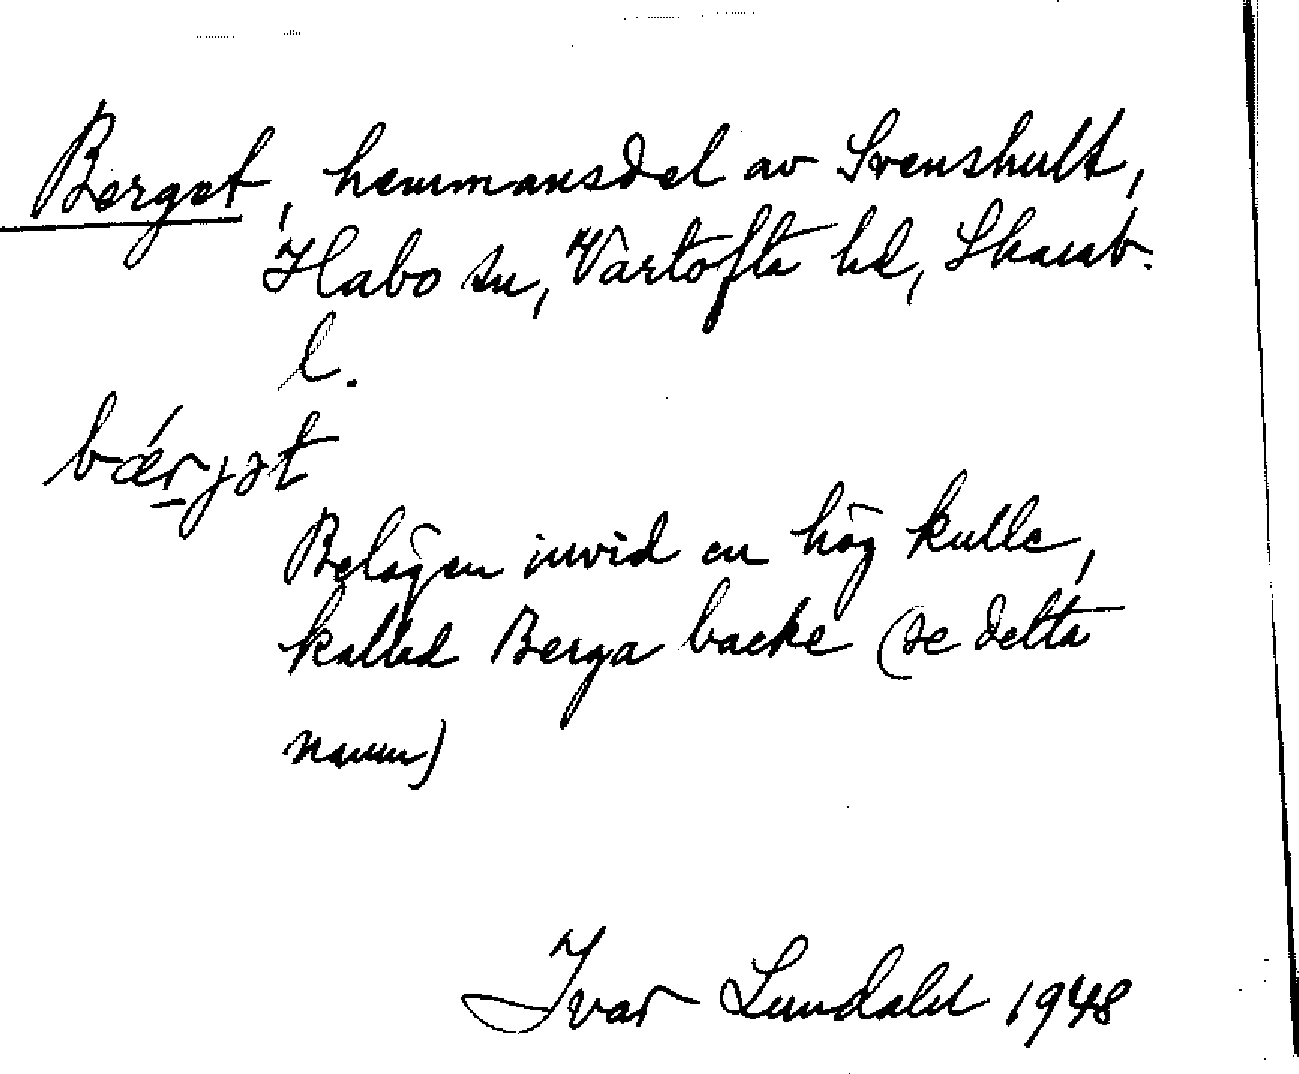 Berget, hemmansdel av Svenshult,
Habo sn, Vartofta hd, Skarab.
l.
bǽrjət
Belägen invid en hög kulle,
kallad Berga backe (se detta
namn)
Ivar Lundahl 1948